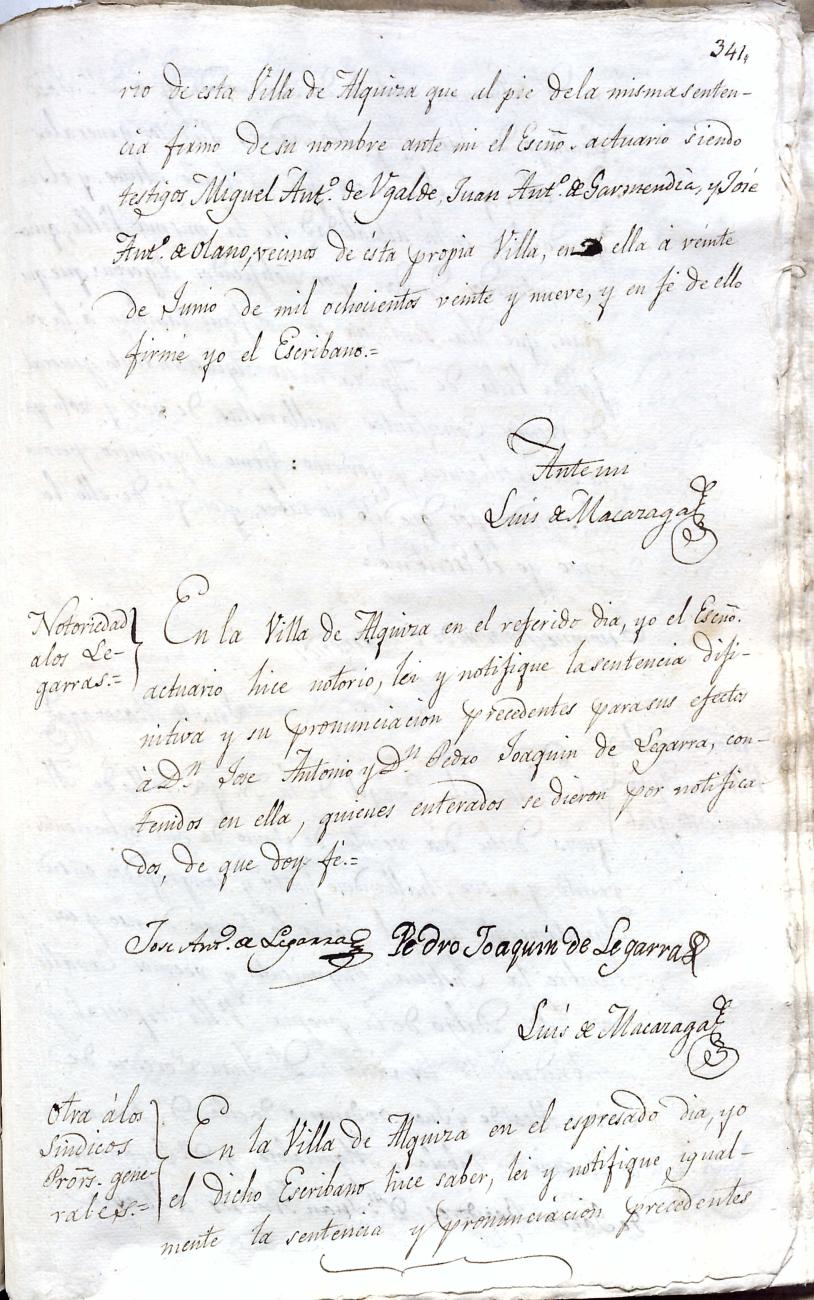 341,,
rio de esta Villa de Alquiza que al pie dela misma senten-
cia firmo de su nombre ante mi el Escño. actuario siendo
testigos Miguel Antº. de Ugalde, Juan Antº. de Garmendia, y José
Antº. de Olano, vecinos de ésta propia Villa, en ella á veinte
de Junio de mil ochocientos veinte y nueve, y en fé de ello
firmé yo el Escribano.=
Ante mi
Luis de Macazaga
Notoriedad
alos Le-
garras.=
En la Villa de Alquiza en el referido dia, yo el Escño.
actuario hice notorio, lei y notifique la sentencia difi-
nitiva y su pronunciacion precedentes para sus efectos
á Dn. Jose Antonio y Dn. Pedro Joaquin de Legarra, con-
tenidos en ella, quienes enterados se dieron por notifica-
dos, de que doy fé.=
Jose Antº. de Legarra Pedro Joaquin de Legarra
Luis de Macazaga
Otra álos
Sindicos
Prors. gene-
rales.=
En la Villa de Alquiza en el espresado dia, yo
el dicho Escribano hice saber, lei y notifique igual-
mente la sentencia y pronunciacion precedentes